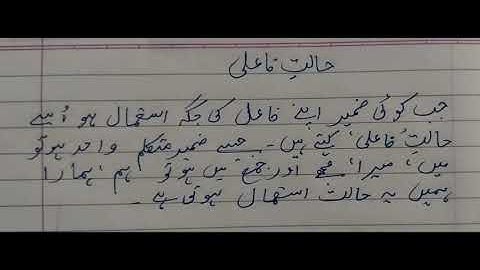 حالتِ فاعلی
جب کوئی ضمیر اپنے فاعل کی جگہ استعمال ہو اُسے
حالتِ فاعلی کہتے ہیں۔ جیسے ضمیر متکلم واحد ہو تو
میں، میرا، مجھے اور جمع میں ہو تو ہم، ہمارا
ہمیں یہ حالت استعمال ہوتی ہے۔